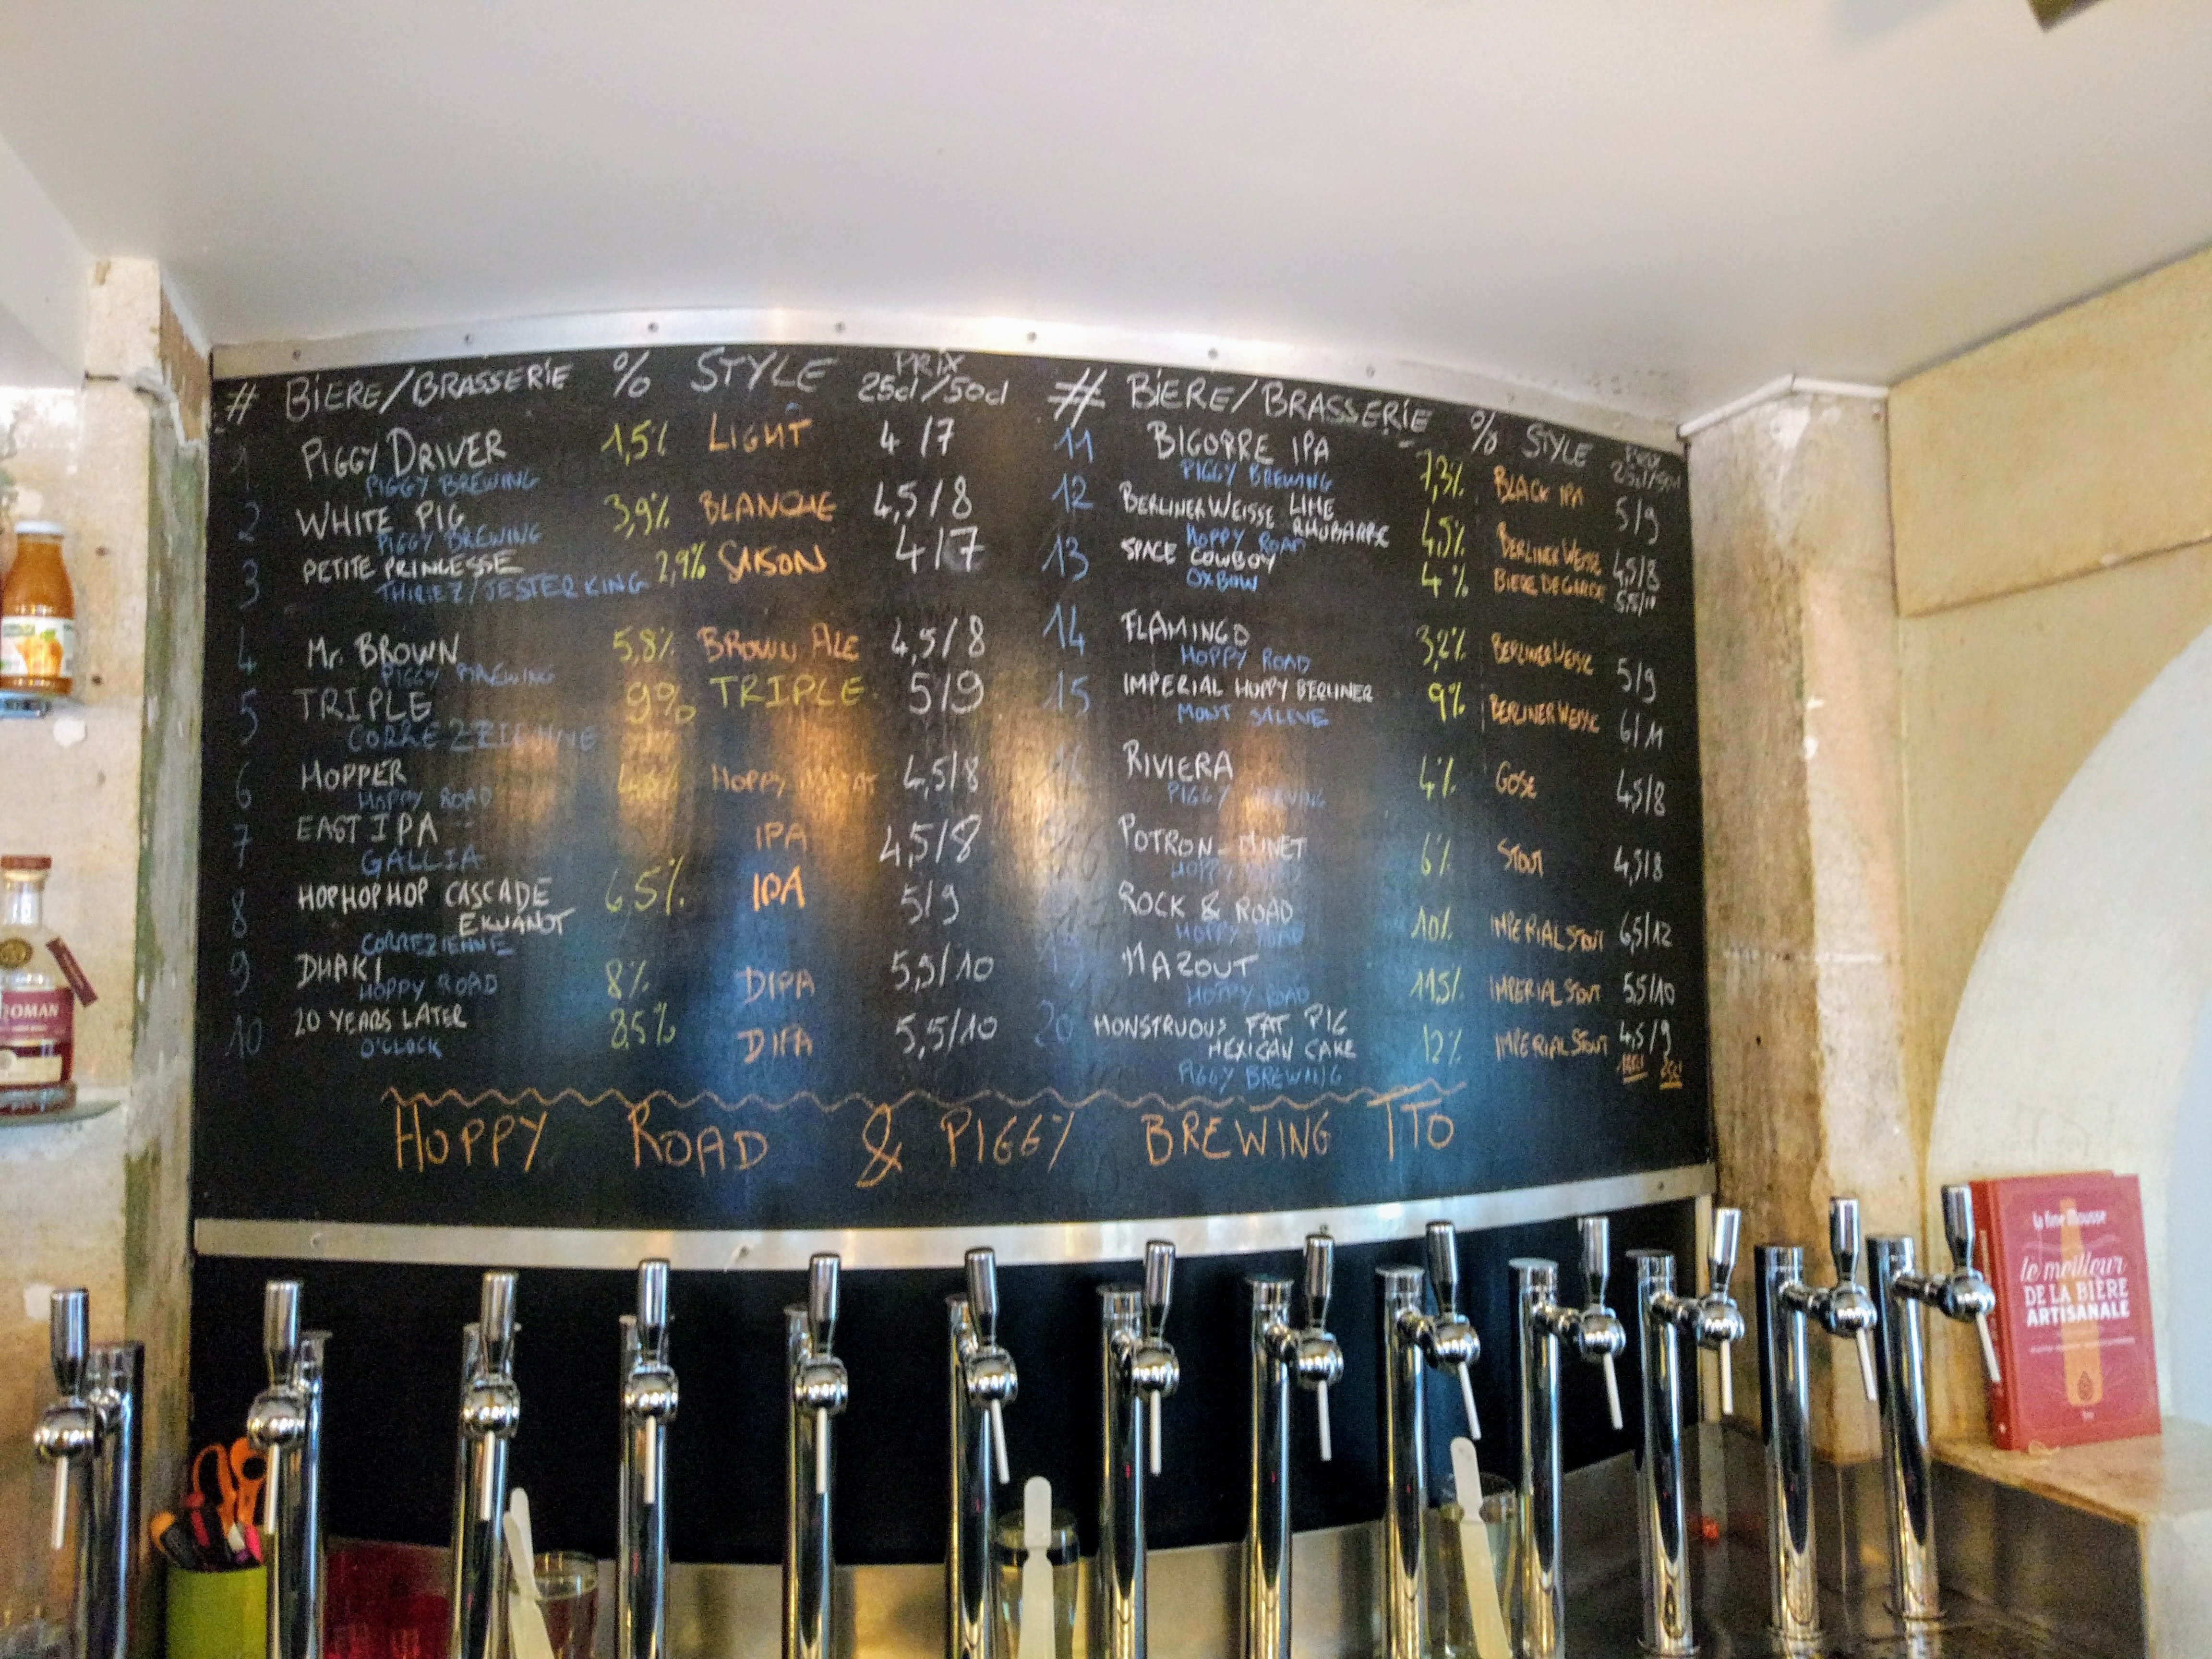 # BIERE/BRASSERIE % STYLE PRIX 25cl/50cl
1 PIGGY DRIVER 1,5% LIGHT 4/7
PIGGY BREWING
2 WHITE PIG 3,9% BLANCHE 4,5/8
PIGGY BREWING
3 PETITE PRINCESSE 2,9% SAISON 4/7
THIRIEZ/JESTER KING
4 Mr. BROWN 5,8% BROWN ALE 4,5/8
PIGGY BREWING
5 TRIPLE 9% TRIPLE 5/9
CORREZZIENNE
6 HOPPER HOPPY 4,5/8
HOPPY ROAD
7 EAST IPA IPA 4,5/8
GALLIA
8 HOPHOPHOP CASCADE 6,5% IPA 5/9
EKUANOT
CORREZIENNE
9 DHAKI 8% DIPA 5,5/10
HOPPY ROAD
10 20 YEARS LATER 8,5% DIPA 5,5/10
O'CLOCK
# BIERE/BRASSERIE % STYLE PRIX 25cl/50cl
11 BIGORRE IPA 7,3% BLACK IPA 5/9
PIGGY BREWING
12 BERLINER WEISSE LIME 4,5% BERLINER WEISSE 4,5/8
RHUBARBE
HOPPY ROAD
13 SPACE COWBOY 4% BIERE DE GARDE 5,5/11
OXBOW
14 FLAMINGO 3,2% BERLINER WEISSE 5/9
HOPPY ROAD
15 IMPERIAL HOPPY BERLINER 9% BERLINER WEISSE 6/11
MONT SALEVE
16 RIVIERA 4% GOSE 4,5/8
PIGGY BREWING
POTRON-MINET 6% STOUT 4,5/8
HOPPY ROAD
ROCK & ROAD 10% IMPERIAL STOUT 6,5/12
HOPPY ROAD
19 MAZOUT 11,5% IMPERIAL STOUT 5,5/10
HOPPY ROAD
20 MONSTRUOUS FAT PIG 12% IMPERIAL STOUT 4,5/9
MEXICAN CAKE
PIGGY BREWING
HOPPY ROAD & PIGGY BREWING TTO
la fine mousse
le meilleur
DE LA BIÈRE
ARTISANALE